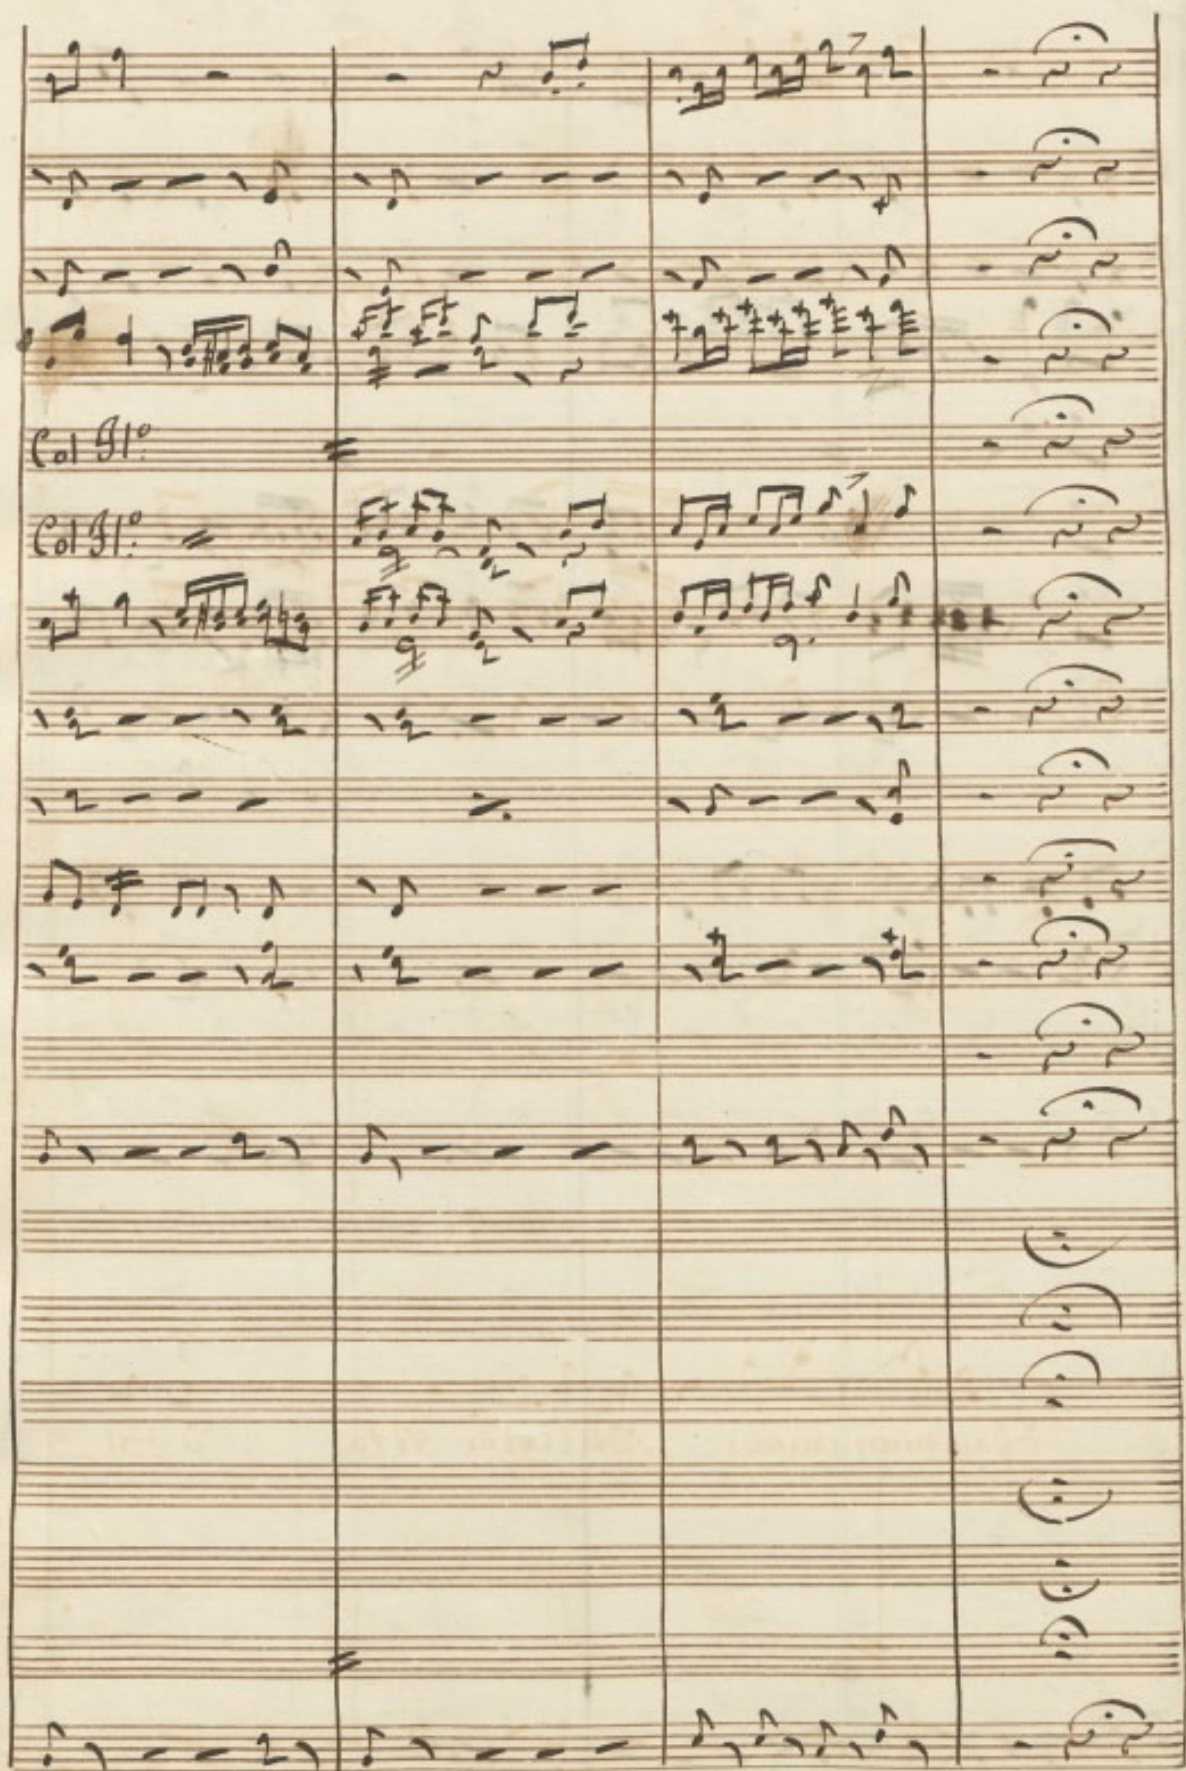 Col Fl.º
Col Fl.º